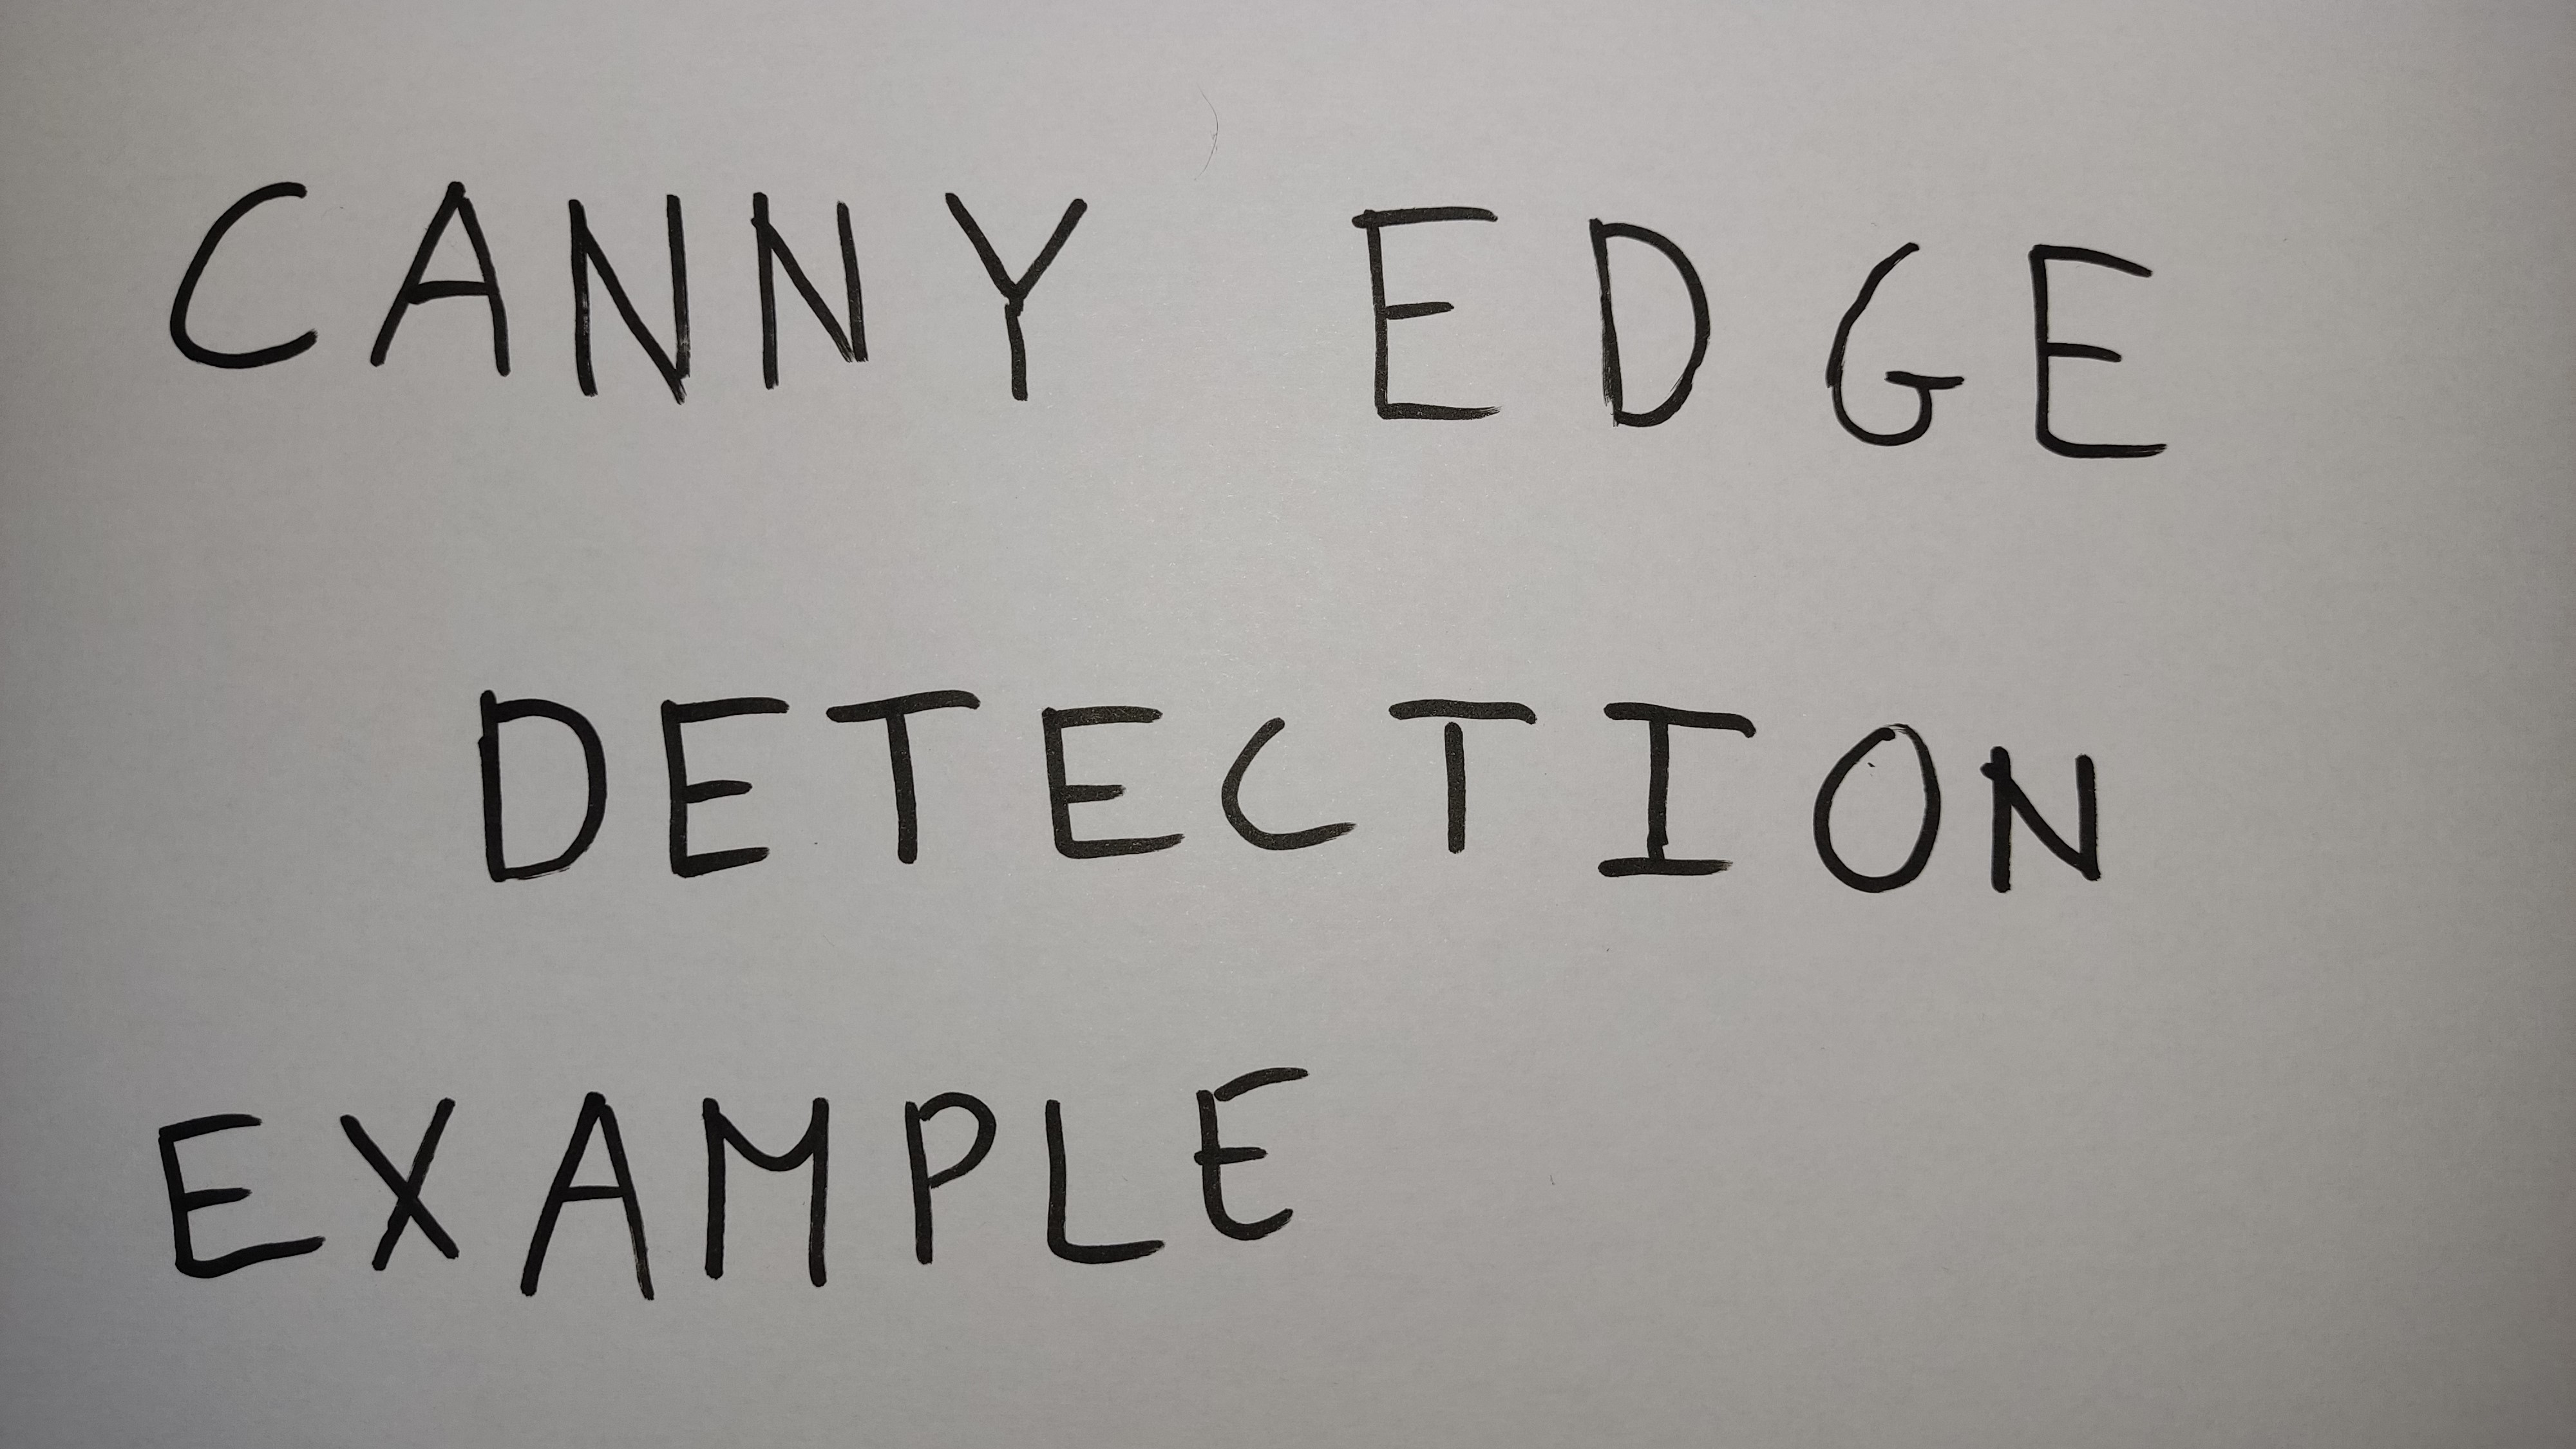 CANNY EDGE
DETECTION
EXAMPLE